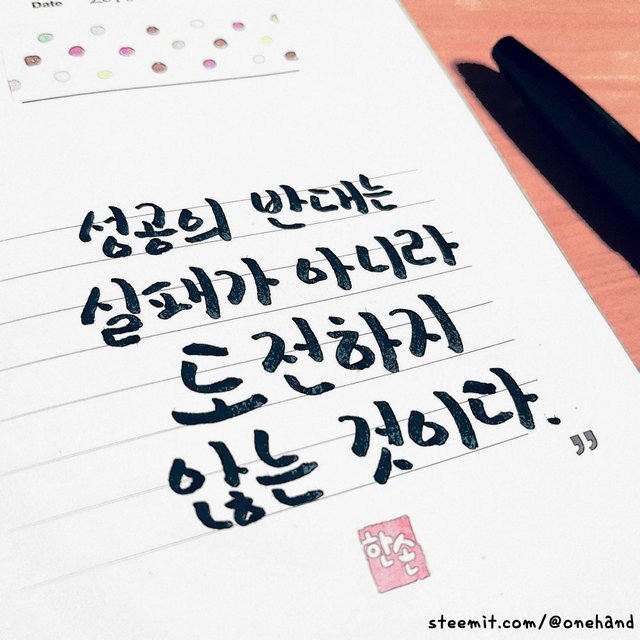 Date
성공의 반대는
실패가 아니라
도전하지
않는 것이다.
”
한손
steemit.com/@onehand